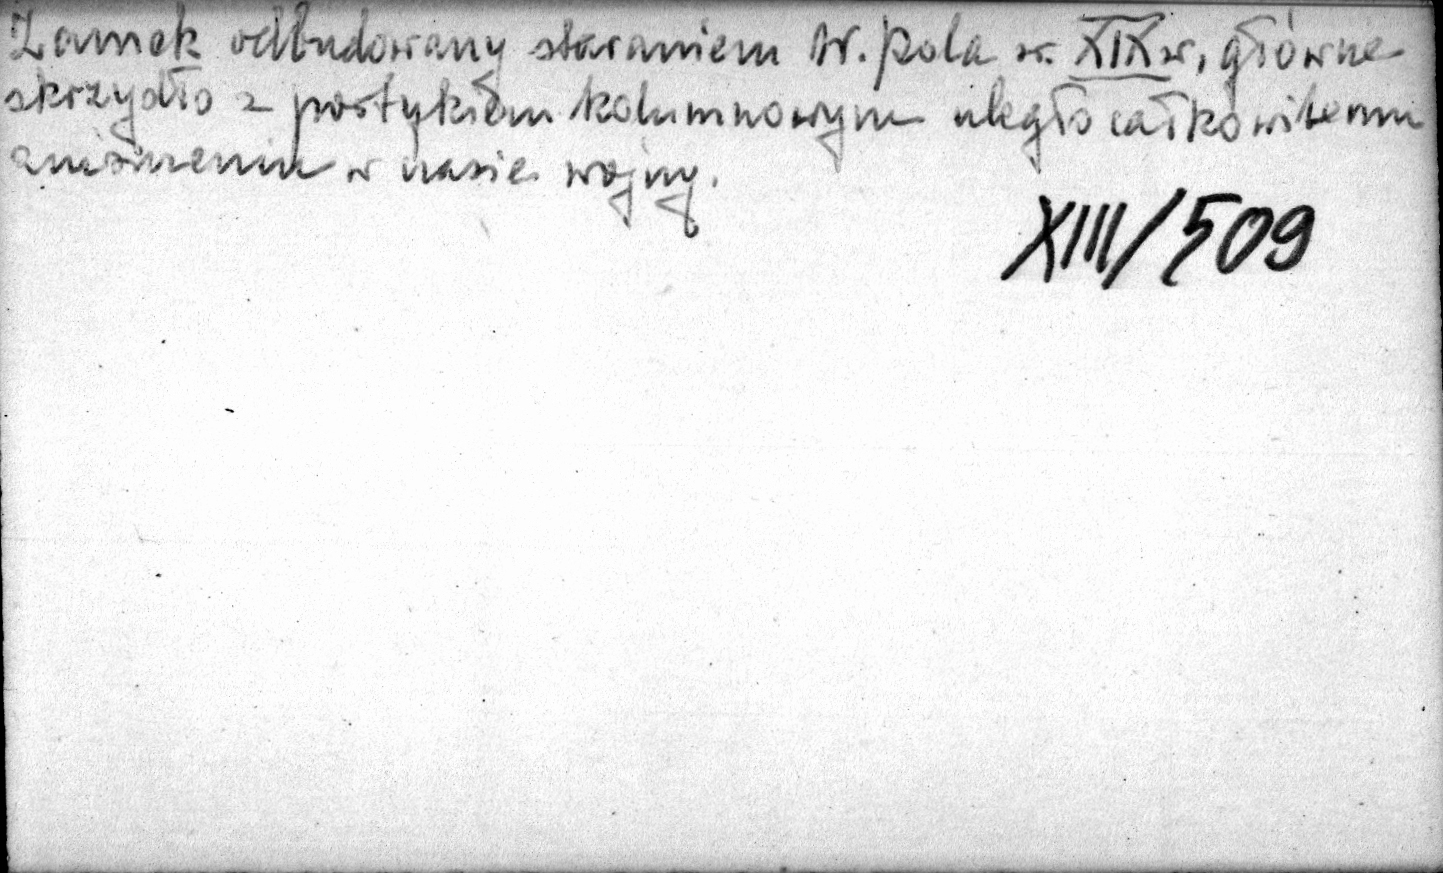 Zamek odbudowany staraniem W. Pola w XIX w, główne
skrzydło z portykiem kolumnowym uległo całkowitemu
zniszczeniu w czasie wojny.
XIII/509